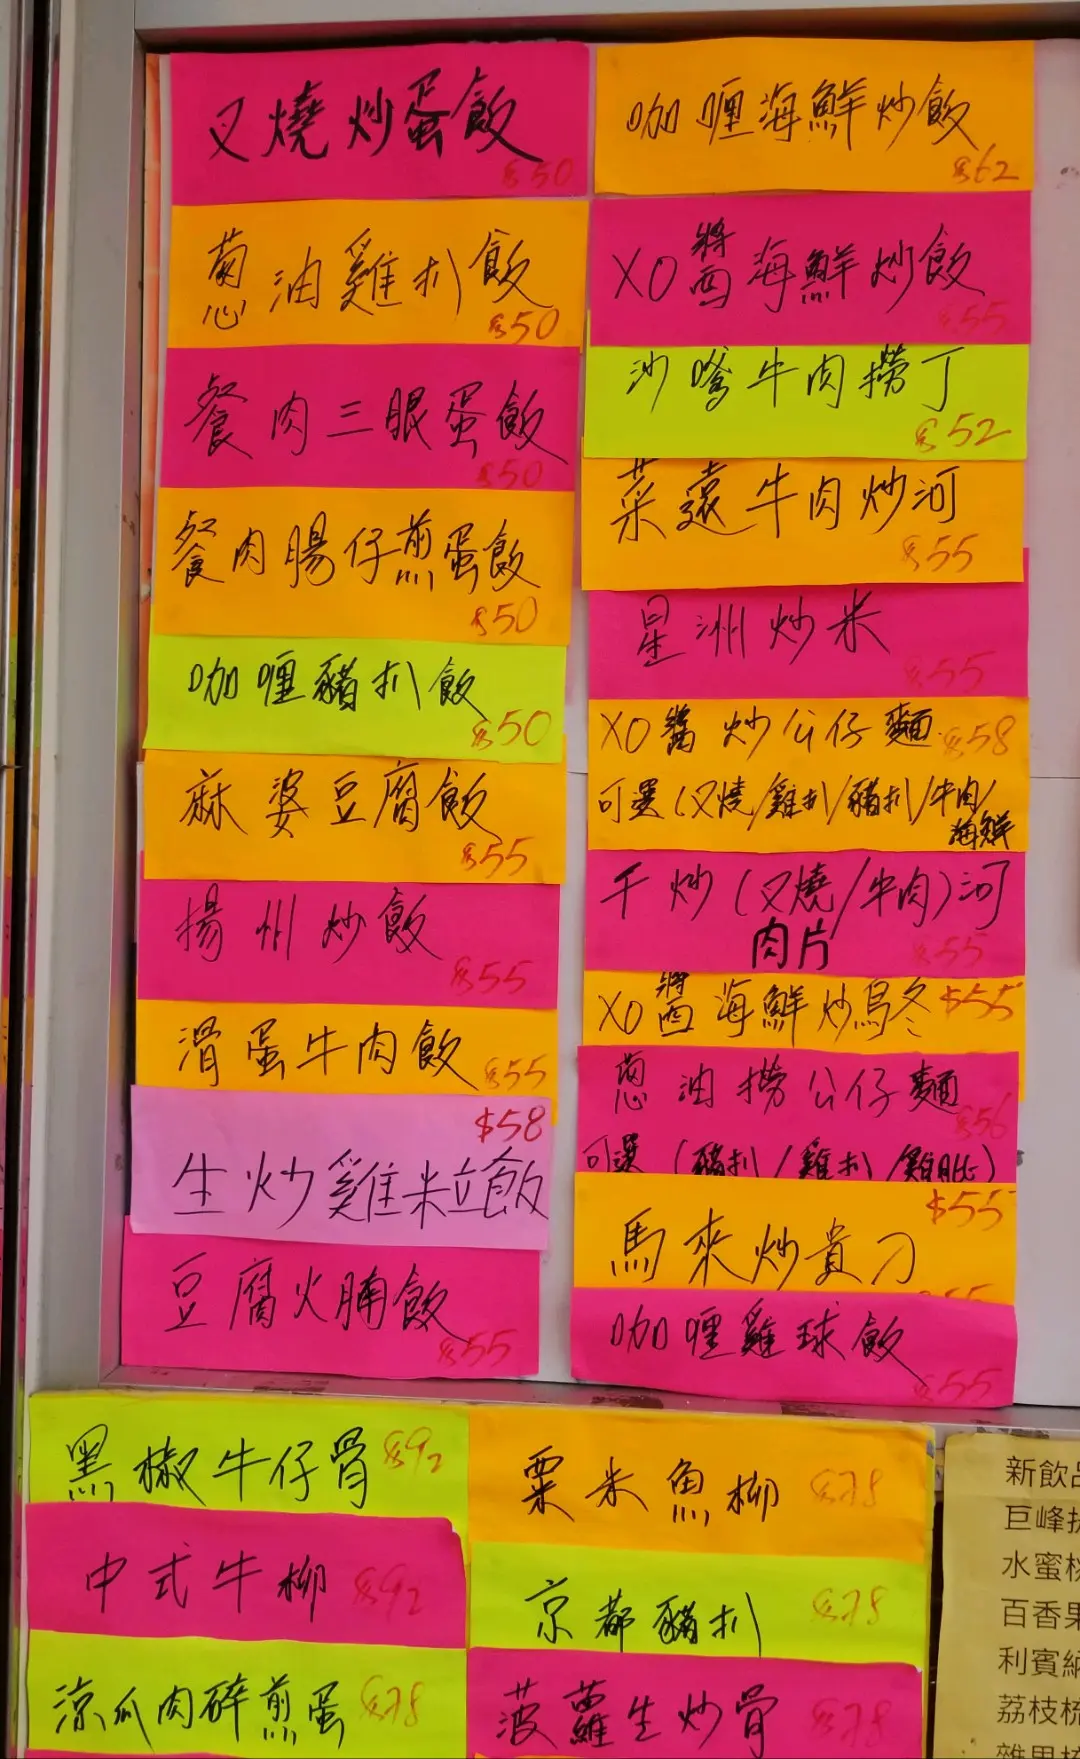 叉燒炒蛋飯
$50
葱油雞扒飯
$50
餐肉三眼蛋飯
$50
餐肉腸仔煎蛋飯
$50
咖喱豬扒飯
$50
麻婆豆腐飯
$55
揚州炒飯
$55
滑蛋牛肉飯
$55
$58
生炒雞米粒飯
豆腐火腩飯
$55
咖喱海鮮炒飯
$62
XO醬海鮮炒飯
$55
沙嗲牛肉撈丁
$52
菜遠牛肉炒河
$55
星洲炒米
$55
XO醬炒公仔麵 $58
可選(叉燒/雞扒/豬扒/牛肉/
海鮮
干炒(叉燒/牛肉)河
肉片
$55
XO醬海鮮炒烏冬 $55
葱油撈公仔麵
$56
可選(豬扒/雞扒/雞脾)
$55
馬來炒貴刁
咖喱雞球飯
$55
黑椒牛仔骨 $92
中式牛柳 $92
涼瓜肉碎煎蛋 $78
粟米魚柳 $78
京都豬扒 $78
菠蘿生炒骨 $78
新飲品
巨峰
水蜜桃
百香果
利賓納
荔枝